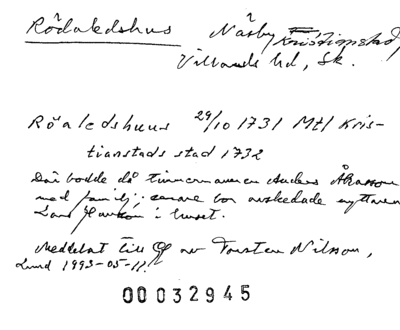 Rödaledshus Näsby Kristianstad,
Villands hd, Sk.
Röaledshuus 29/10 1731 Mtl Kris-
tianstads stad 1732
Där bodde då timmermannen Anders Åkasson
med familj; senare bor avskedade ryttaren
Lars Hansson i huset.
Meddelat till av Torsten Nilsson,
Lund 1993-05-11.
00032945